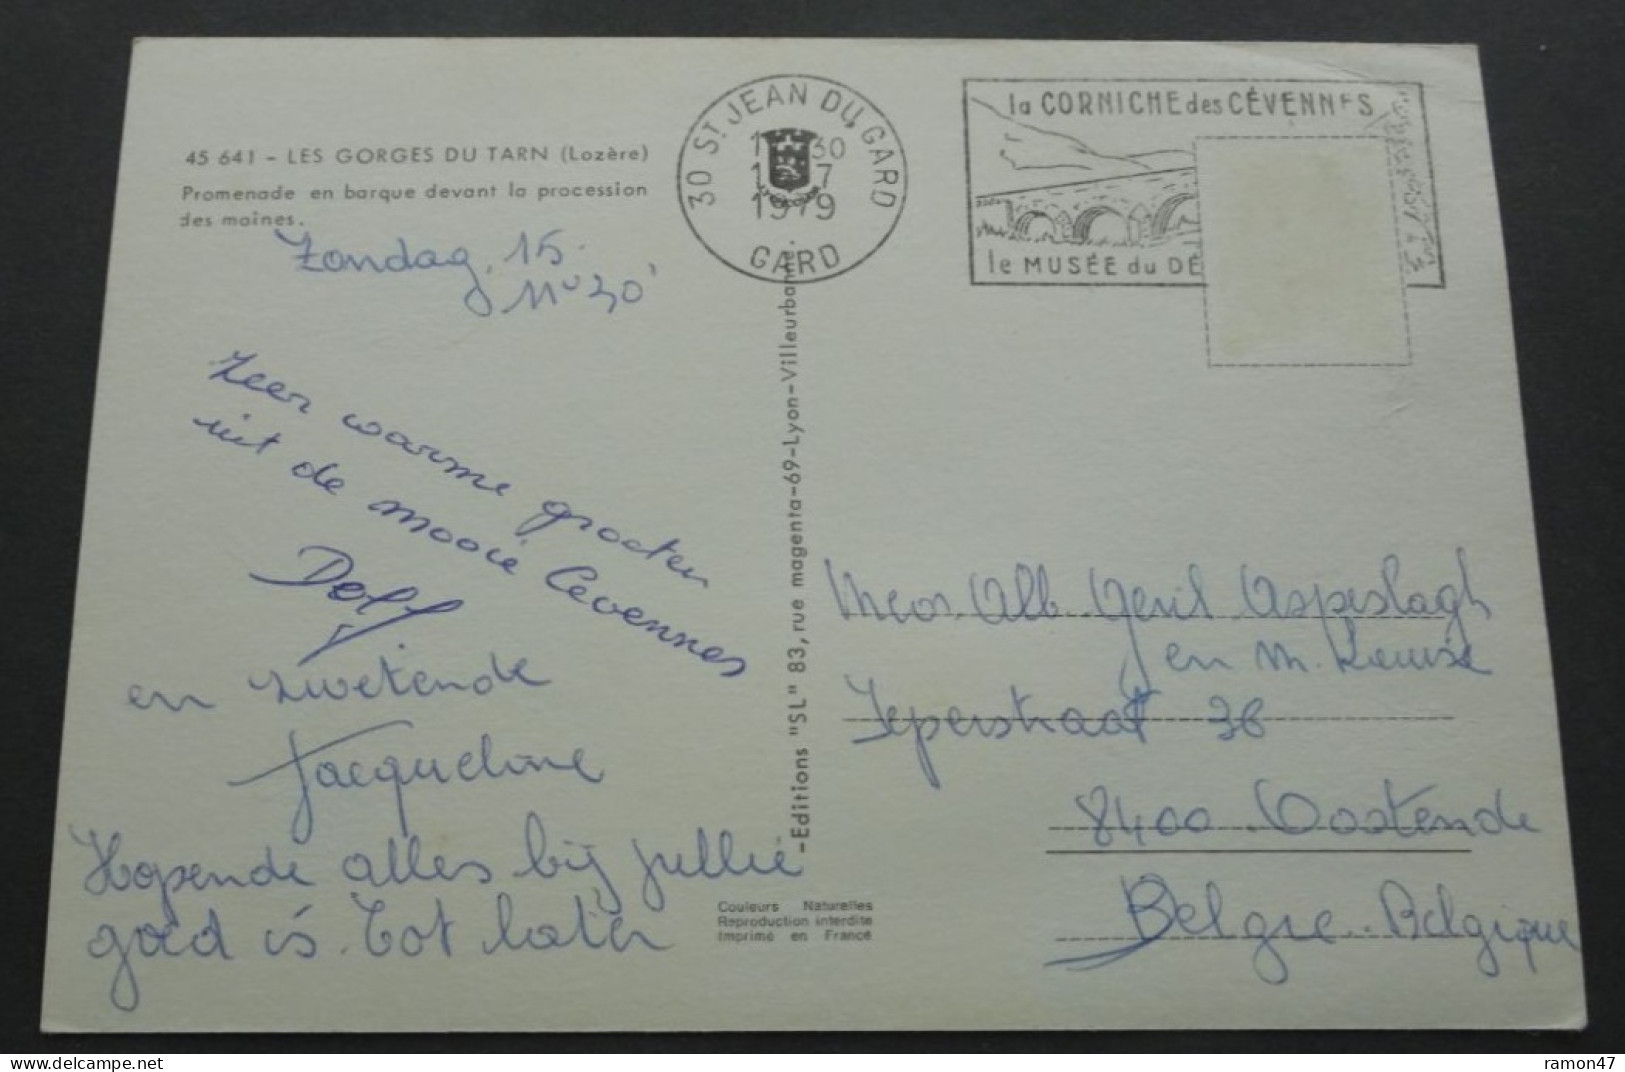 45 641 - LES GORGES DU TARN (Lozère)
Promenade en barque devant la procession
des moines.
Zondag, 15.
11u 30'
Zeer warme groeten
uit de mooie Cévennes
Dolf
en zwetende
Jacqueline
Hopende alles bij jullie
goed is. Tot later
30 ST JEAN DU GARD
30
7
1979
GARD
la CORNICHE des CÉVENNES
le MUSÉE du DÉ
-Editions "SL" 83, rue magenta-69-Lyon-Villeurbanne-
Couleurs Naturelles
Reproduction interdite
Imprimé en France
Alb. Aspeslagh
en M. Louise
Ieperstraat 36
8400 Oostende
België. Belgique
www.delcampe.net
ramon47